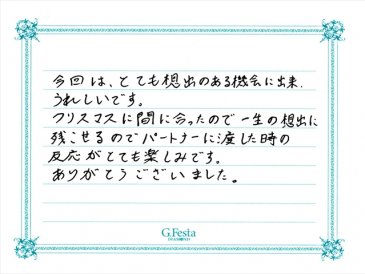 今回は、とても想出のある機会に出来、
うれしいです。
クリスマスに間に合ったので一生の想出に
残こせるのでパートナーに渡した時の
反応がとても楽しみです。
ありがとうございました。
G.Festa
DIAMOND